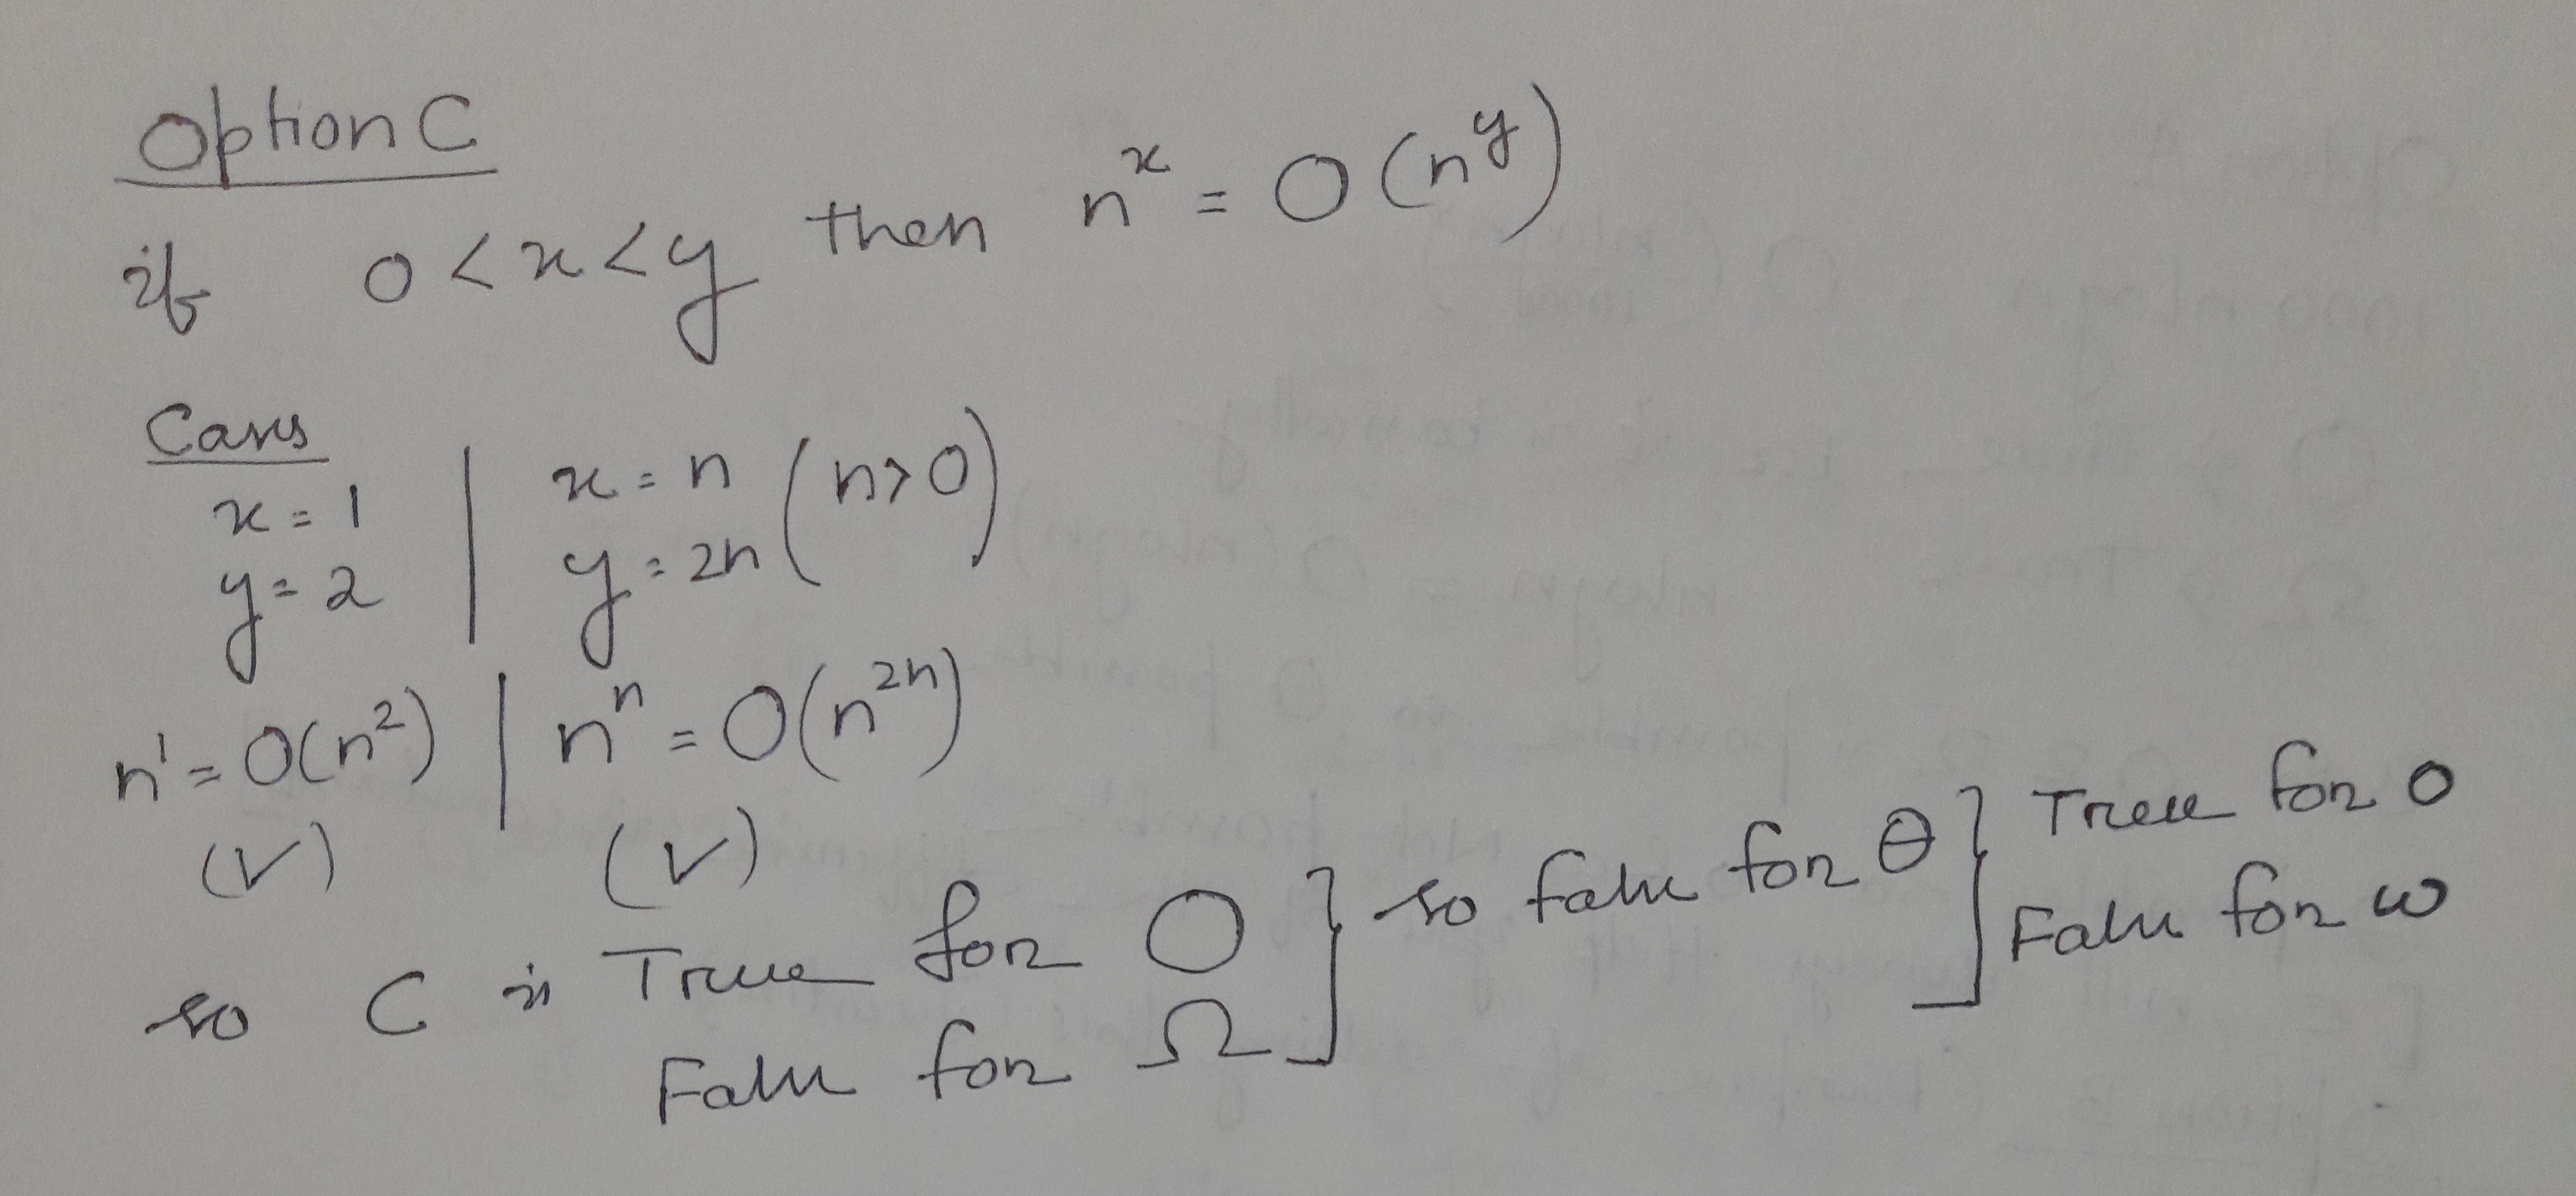 Option C
if 0 < x < y then n^x = O(n^y)
Cases
x = 1 | x = n (n>0)
y = 2 | y = 2n
n^1 = O(n^2) | n^n = O(n^{2n})
(✓) (✓)
so C is True for O } so false for θ } True for o
False for Ω } False for ω